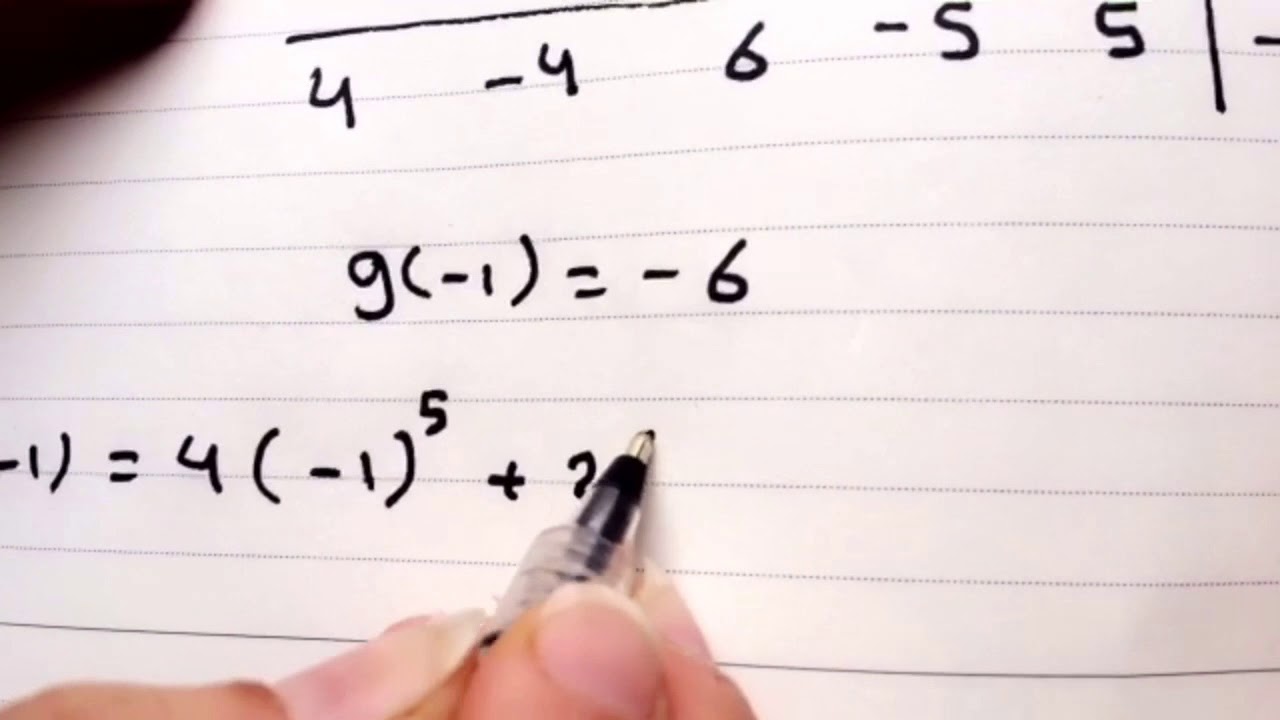 4 -4 6 -5 5 | -
g(-1) = - 6
-1) = 4 (-1)⁵ +